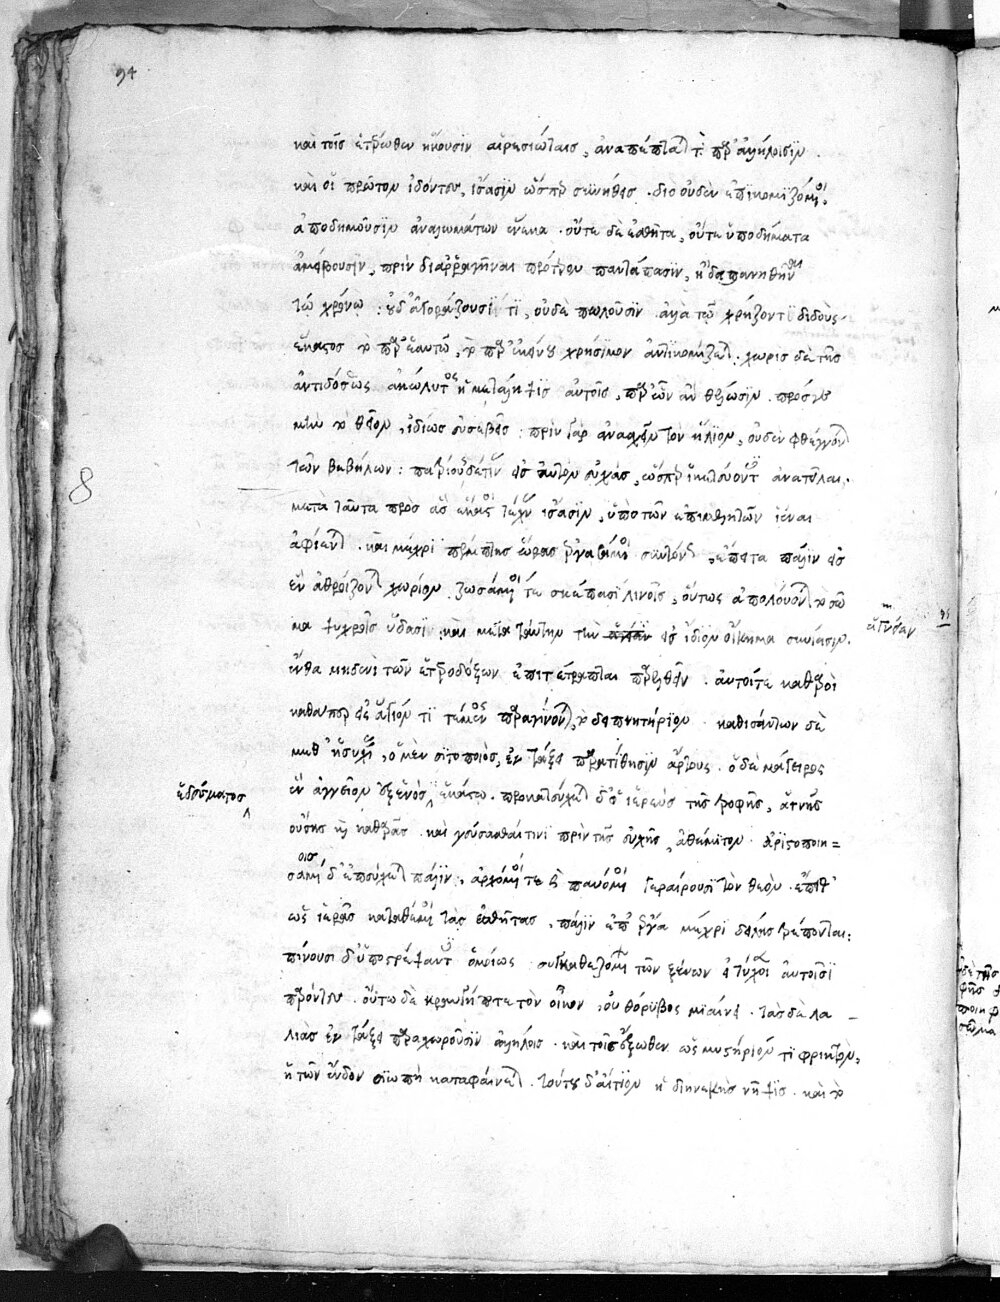 94
καὶ τοῖς ἑτέρωθεν ἥκουσϊν αἱρεσιώταις, ἀναπέπταται τὰ παρ' ἀλλήλοισϊν.
καὶ οἱ πρῶτον ἰδόντες, ἴσασϊν ὥσπερ συνήθεις. διὸ οὐδὲν ἐπικομιζόμενοι,
ἀποδημοῦσϊν ἀναλωμάτων ἕνεκα. οὔτε δὲ ἐσθῆτα, οὔτε ὑποδήματα
ἀμείβουσϊν, πρὶν διαρραγῆναι πρότερον παντάπασϊν, ἢ δαπανηθῆναι
τῶ χρόνω. οὐδ' ἀγοράζουσί τι, οὐδὲ πωλοῦσϊν. ἀλλὰ τῷ χρήζοντι διδοὺς
ἕκαστος τὸ παρ' ἑαυτῶ, τὸ παρ' ἐκείνου χρήσιμον ἀντικομίζεται. χωρὶς δὲ τῆς
ἀντιδόσεως ἀκώλυτος ἡ μετάληψις αὐτοῖς, παρ' ὧν ἂν θελώσϊν. πρός γε
μὴν τὸ θεῖον, ἰδίως εὐσεβεῖς: πρὶν γὰρ ἀνασχεῖν τὸν ἥλιον, οὐδὲν φθέγγονται
8
τῶν βεβήλων: πατρίους δέ τινας εἰς αὐτὸν εὐχὰς, ὥσπερ ἱκετεύοντες ἀνατεῖλαι.
μετὰ ταῦτα πρὸς ἃς ἕκαστος τέχνας ἴσασϊν, ὑπὸ τῶν ἐπιμελητῶν ἰέναι
ἀφίενται. καὶ μέχρι πέμπτης ὥρας ἐργασάμενοι συντόνως, ἔπειτα πάλϊν εἰς
ἓν ἀθροίζονται χωρίον. ζωσάμενοί τε σκεπάσμασι λινοῖς, οὕτως ἀπολούονται τὸ σῶ
μα ψυχροῖς ὕδασϊ. καὶ μετὰ ταύτην τὴν ἁγνείαν εἰς ἴδιον οἴκημα συνίασϊν.
ἔνθα μηδενὶ τῶν ἑτεροδόξων ἐπιτέτραπται παρελθεῖν. αὐτοί τε καθαροὶ
καθάπερ εἰς ἅγιόν τι τέμενος παραγίνονται τὸ δειπνητήριον. καθισάντων δὲ
μεθ' ἡσυχίας, ὁ μὲν σϊτοποιὸς, ἐν τάξει παρατίθησϊν ἄρτους. ὁ δὲ μάγειρος
ἓν ἀγγεῖον ἐξ ἑνὸς ἑκάστω. προκατεύχεται δ' ὁ ἱερεὺς τῆς τροφῆς, ἁγνῆς
ἐδέσματος
οὔσης καὶ καθαρᾶς. καὶ γεύσασθαί τινι πρὶν τῆς εὐχῆς, ἀθέμιτον. ἀριστοποιη=
σαμένοις δ' ἐπεύχεται πάλϊν, ἀρχόμενοί τε καὶ παυόμενοι γεραίρουσϊ τὸν θεόν. ἔπειθ'
ὡς ἱερὰς καταθέμενοι τὰς ἐσθῆτας, πάλϊν ἐπ' ἔργα μέχρι δείλης τρέπονται:
πίνουσι δ' ὑποστρέψαντες ὁμοίως. συγκαθεζομένων τῶν ξένων εἰ τύχοιεν αὐτοῖσϊ
παρόντες. οὔτε δὲ κραυγή ποτε τὸν οἶκον, οὐ θόρυβος μϊαίνει. τὰς δὲ λα
λιὰς ἐν τάξει παραχωροῦσϊν ἀλλήλοις. καὶ τοῖς ἔξωθεν ὡς μυστήριόν τι φρικτὸν,
ἡ τῶν ἔνδον σϊωπὴ καταφαίνεται. τούτου δ' αἴτϊον ἡ διηνεκὴς νῆψϊς. καὶ τὸ